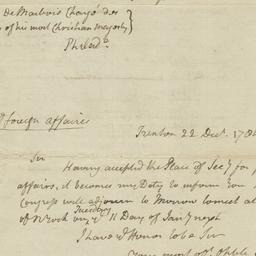 De Marbois Chargé des
of his most Christian Majesty
Philad.
foreign affairs
Trenton 22 Dec.r 178
Sir
Having accepted the Place of Sec.y for
affairs, it becomes my Duty to inform You
Congress will adjourn to Morrow to meet at
of N York on
Tuesday
11 Day of Jan.y next
I have ye Honor to be Sir